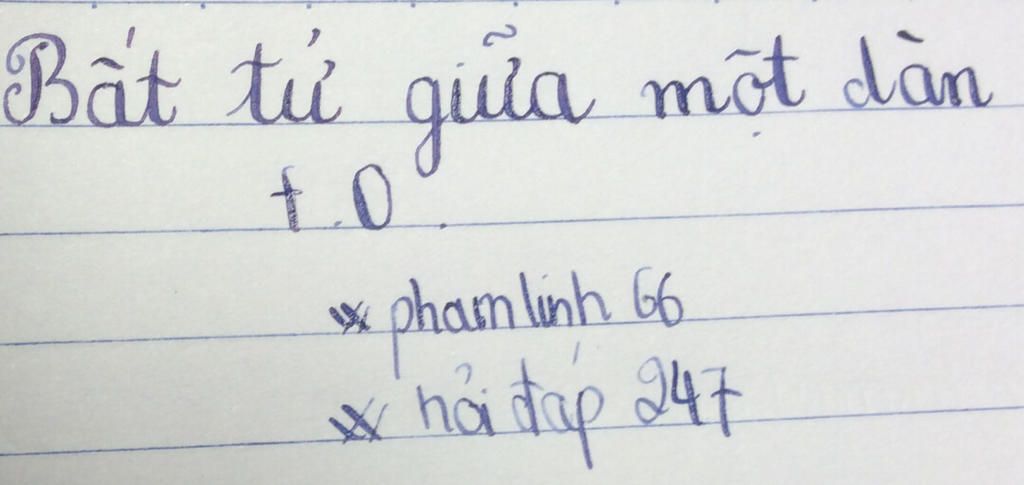 Bất tử giữa một dàn
t.O.
phamlinh 66
hỏi đáp 247